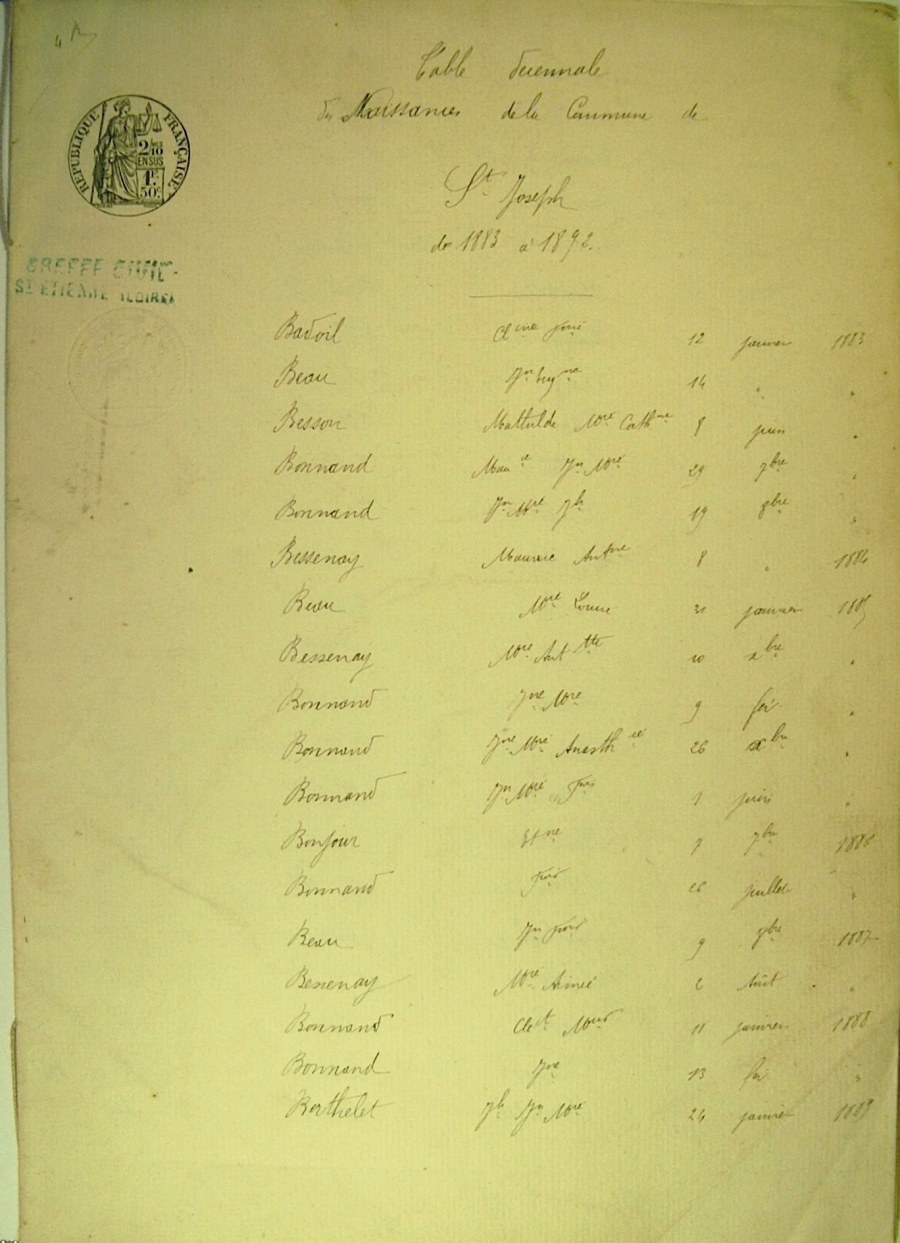 Table decennale
des Naissances de la Commune de
St Joseph
de 1883 à 1892.
RÉPUBLIQUE FRANÇAISE
2/10 EN SUS
1F 50c
GREFFE CIVIL
ST ETIENNE (LOIRE)
Badoil 12 janvier 1883
Beau 14 " "
Besson Mathilde Mrie Cathne 8 juin "
Bonnand Jn Mrie 29 7bre "
Bonnand Jn Mrie Jh 19 8bre "
Bessenay Maurice Antne 8 " 1884
Beau Mrie Louise 21 janvier 1885
Bessenay Mrie Anttte 10 xbre "
Bonnand Jne Mrie 9 fer "
Bonnand Jne Mrie 26 xbre "
Bonnand Jn Mrie Fois 1 juin "
Bonjour Etne 7bre
Bonnand Fois 26 juillet "
Beau Jn Fois 9 1887
Bessenay Mrie Aimée 2 Août "
Bonnand 11 janvier 1888
Bonnand Jne 13 "
Berthelet Jh Jn Mrie 24 janvier 1889